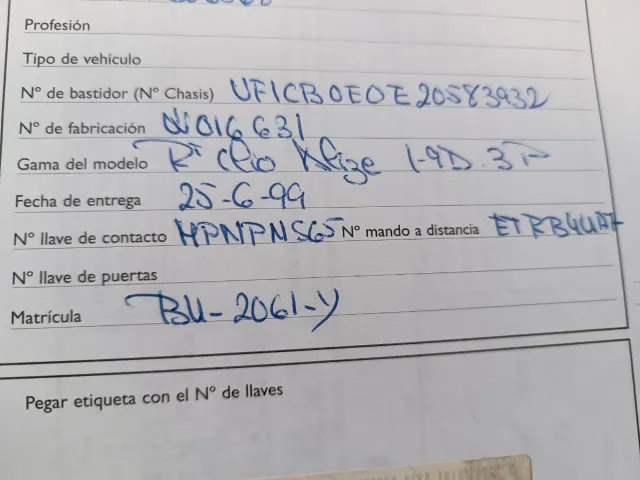 Profesión
Tipo de vehículo
Nº de bastidor (Nº Chasis) VF1CB0E0E20583932
Nº de fabricación W016631
Gama del modelo Rt Clio Alize 1-9D. 3P
Fecha de entrega 25-6-99
Nº llave de contacto HPNPNS65 Nº mando a distancia ETRB4UA7
Nº llave de puertas
Matrícula BU-2061-Y
Pegar etiqueta con el Nº de llaves